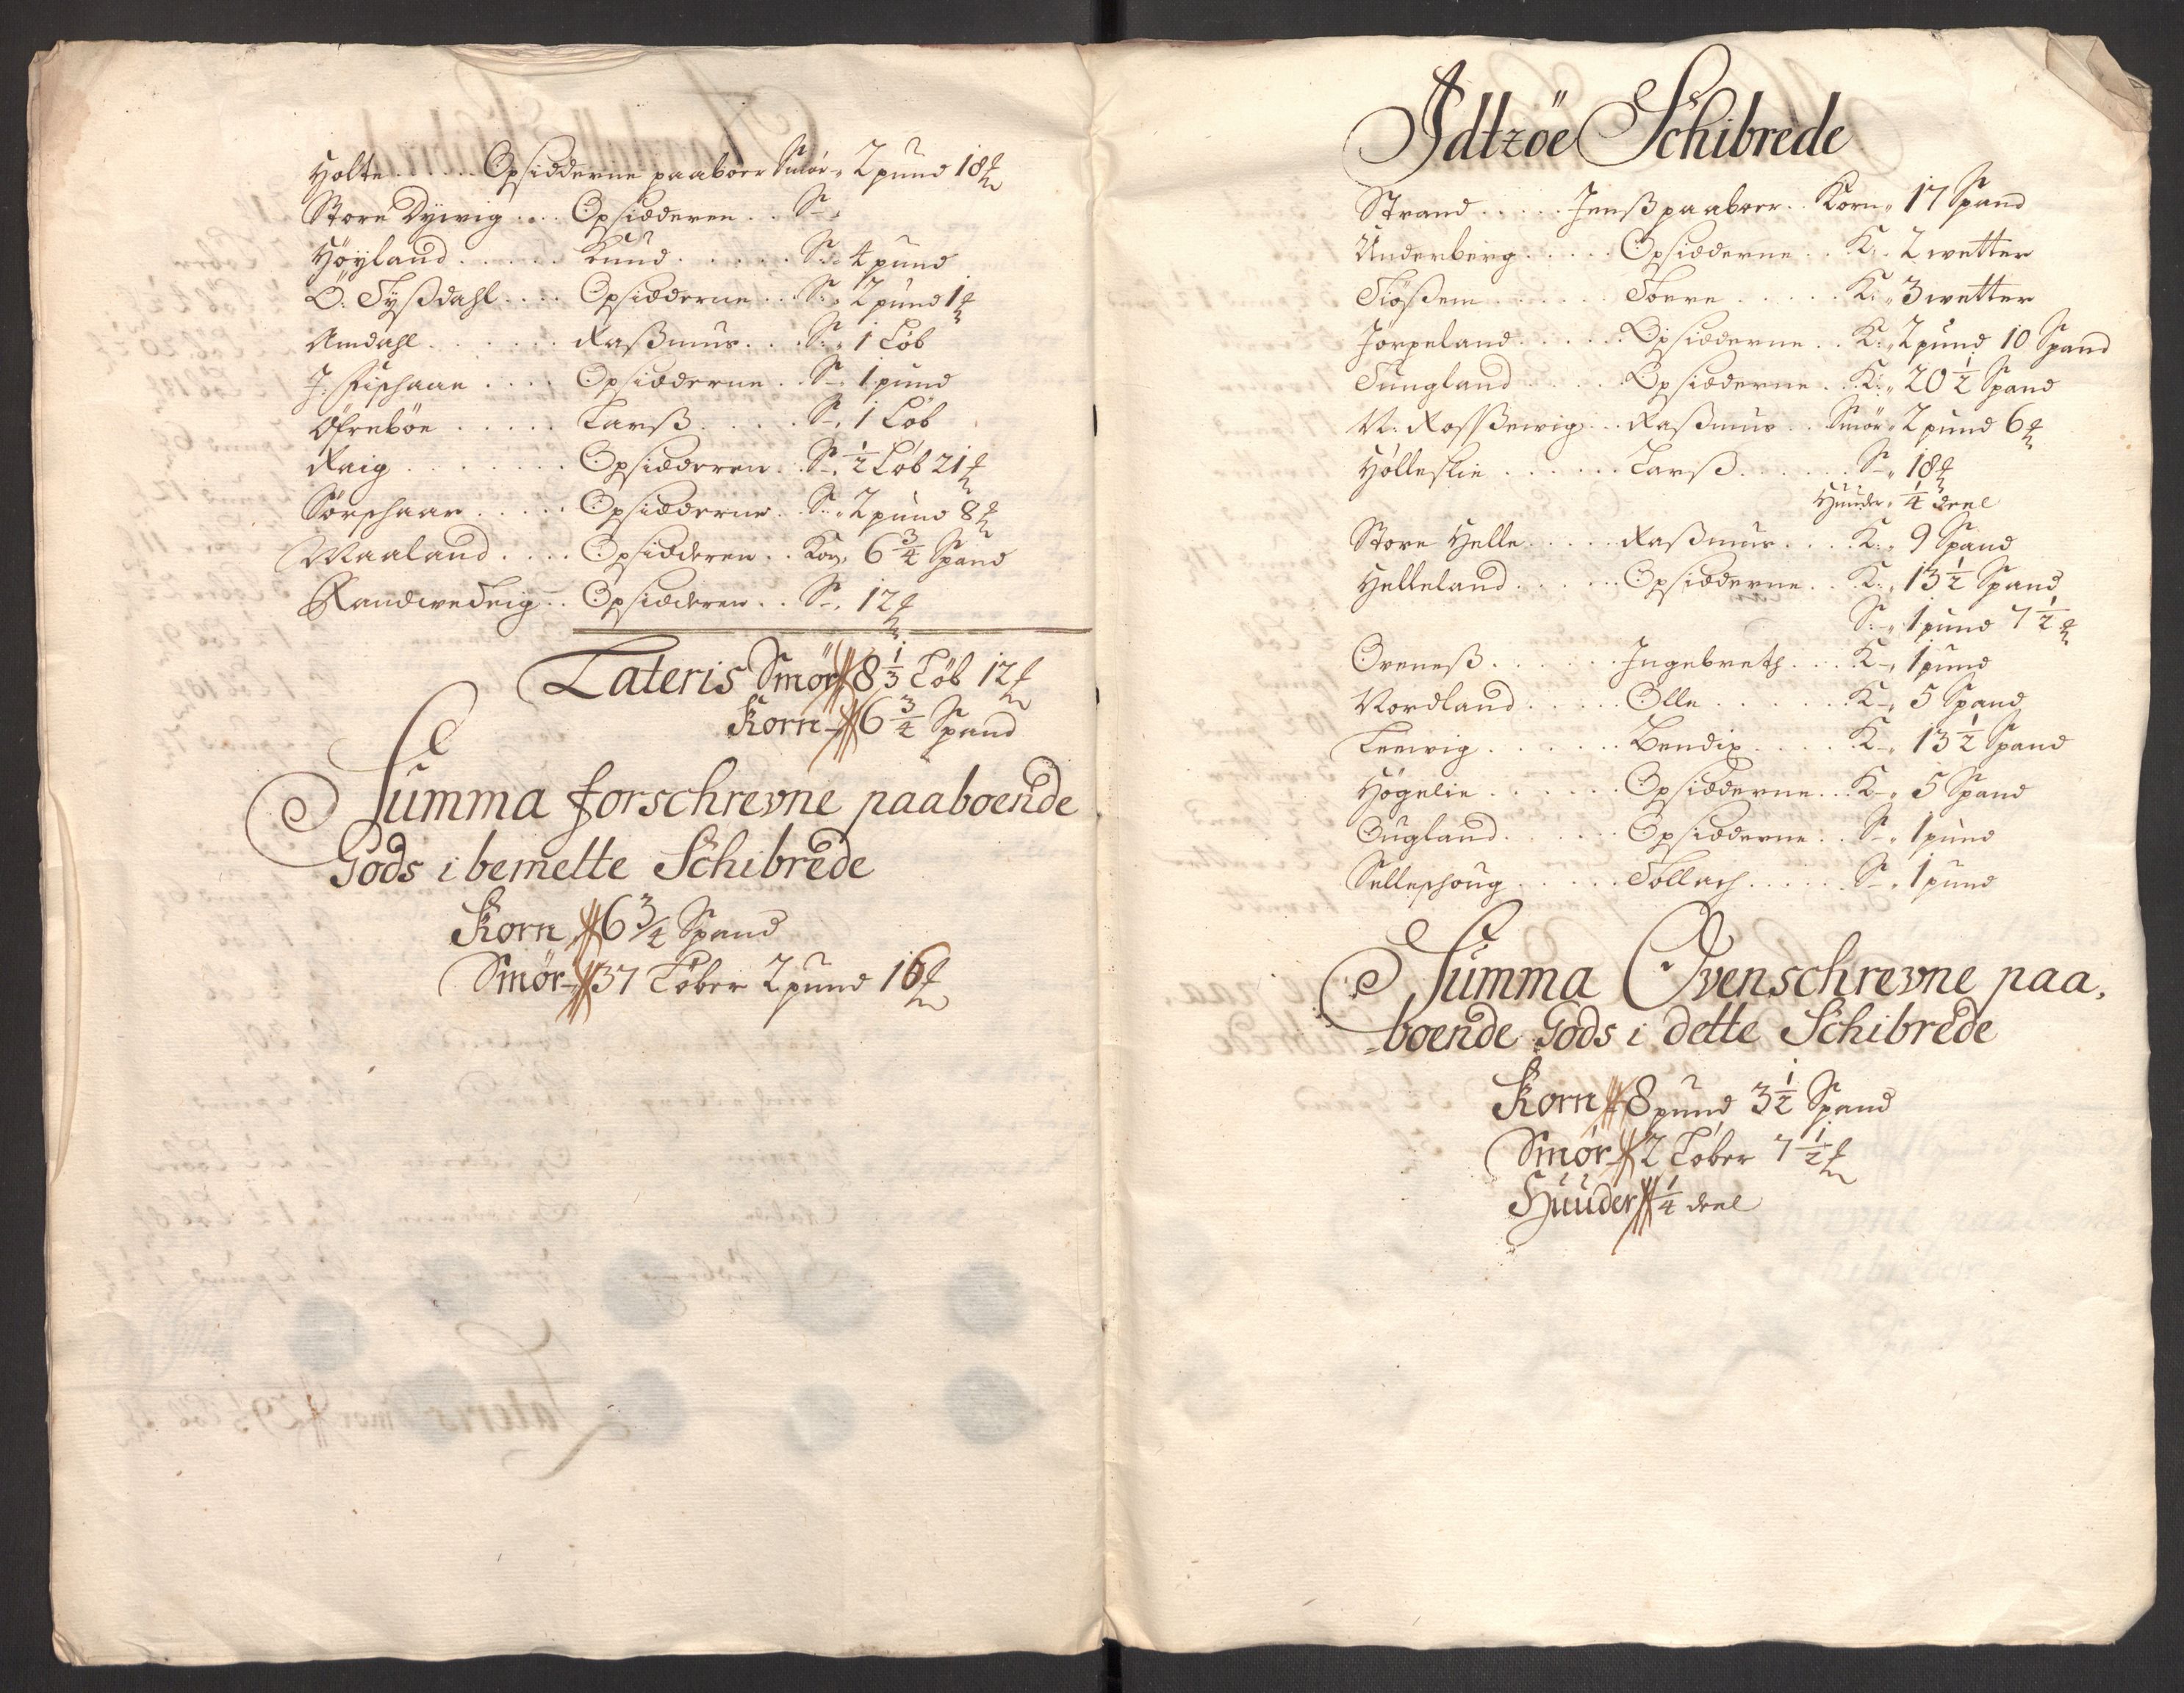 Holte . . . . . Opsidderne paaboer Smør „ 2 pund 18 ℔
Store Dywig . . . . Opsidderen . . S– „
Høyland . . . . . Knud . . . . . . S: „ 4 pund
Ö: Tysßdahl . . . . Opsidderne . . S: „ 2 pund 1 ℔
Amdahl . . . . . . Raßmus . . . S: „ 1 Løb
J: Fischaae . . . . Opsidderne . . S– „ 1 pund
Øfrebøe . . . . . Larß . . . . S– „ 1 Løb
Raig . . . . . . . Opsidderen . . S– „ ½ Løb 21 ℔
Sørschaar . . . . . Opsidderne . . S: „ 2 pund 8 ℔
Maaland . . . . Opsidderen . . Korn „ 6 ¾ Spand
Opsidderen . . S– „ 12 ℔
Lateris Smør 8 ⅓ Løb 12 ℔
Korn – 6 ¾ Spand
Summa forschrevne paaboende
Gods i bemelte Schibrede
Korn 6 ¾ Spand
Smør – 37 Løber 2 pund 16 ℔
Idtzöe Schibrede
Strand . . . . . Jenß paaboer . . Korn „ 17 Spand
Underberg . . . . . Opsidderne . . K: „ 2 wetter
Tiößem . . . . . . Toere . . . . . K: „ 3 wetter
Jørpeland . . . . . Opsidderne . . K: „ 2 pund 10 Spand
Tungland . . . . . Opsidderne . . K: „ 20 ½ Spand
N: Roßewig . . . Raßmus . . Smør „ 2 pund 6 ℔
Hølleslie . . . . . . Larß . . . . . . S– „ 18 ℔
Huuder „ ¼ deel
Store Helle . . . . . Raßmus . . . . K: „ 9 Spand
Helleland . . . . . Opsidderne . . K: „ 13 ½ Spand
S: „ 1 pund 7 ½ ℔
Oveneß . . . . . . Ingebreth . . . K– „ 1 pund
Nordland . . . . . Olle . . . . . . K– „ 5 Spand
Leewig . . . . . . Bendix . . . . K– „ 13 ½ Spand
Høgelie . . . . . . Opsidderne . . K– „ 5 Spand
Ougland . . . . . . Opsidderne . . S– „ 1 pund
Selleschoug . . . . . Tollach . . . . . S– „ 1 pund
Summa Ovenschrevne paa,
boende Gods i dette Schibrede
Korn 8 pund 3 ½ Spand
Smør – 2 Løber 7 ½ ℔
Huuder ¼ deel